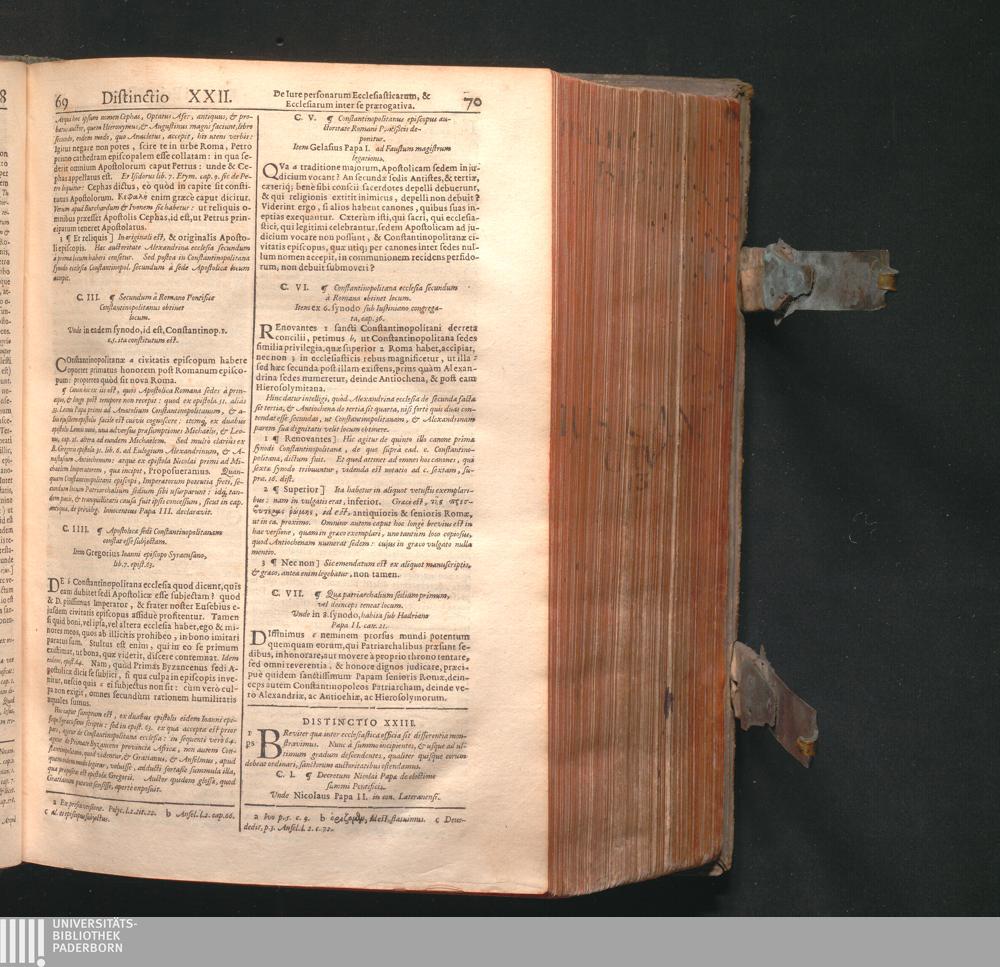 69 Distinctio XXII.
De Iure personarum Ecclesiasticarum, &
Ecclesiarum inter se prærogativa.
70
Atqui hoc ipsum nomen Cephas, Optatus Afer, antiquus, & pro-
batus auctor, quem Hieronymus, & Augustinus magni faciunt, libro
secundo, eodem modo, quo Anacletus, accepit, his utens verbis:
Igitur negare non potes, scire te in urbe Roma, Petro
primo cathedram episcopalem esse collatam: in qua se-
derit omnium Apostolorum caput Petrus: unde & Ce-
phas appellatus est. Et Isidorus lib. 7. Etym. cap. 9. sic de Pe-
tro loquitur: Cephas dictus, eò quòd in capite sit consti-
tutus Apostolorum. Κεφαλὴ enim græcè caput dicitur.
Verum apud Burchardum & Ivonem sic habetur: ut reliquis o-
mnibus præesset Apostolis Cephas, id est, ut Petrus prin-
cipatum teneret Apostolatus.
3 ¶ Et reliquis] In originali est, & originalis Aposto-
li episcopis. Hac auctoritate Alexandrina ecclesia secundum
à prima locum haberi censetur. Sed postea in Constantinopolitana
synodo ecclesia Constantinopol. secundum à sede Apostolica locum
accepit.
C. III. ¶ Secundum à Romano Pontifice
Constantinopolitanus obtinet
locum.
Unde in eadem synodo, id est, Constantinop. 1.
c. 5. ita constitutum est.
Constantinopolitanæ a civitatis episcopum habere
oportet primatus honorem post Romanum episco-
pum: propterea quòd sit nova Roma.
¶ Canon hic is est, quem Apostolica Romana sedes à prin-
cipio, & longo post tempore non recepit: quod ex epistola 51. alias
53. Leonis Papa primi ad Anatolium Constantinopolitanum, & a-
liis ejusdem epistolis facile est cuivis cognoscere: itemque ex duabus
epistolis Leonis noni, una adversus præsumptiones Michaelis, & Leo-
nis, cap. 28. altera ad eundem Michaelem. Sed multò clarius ex
B. Gregorii epistola 31. lib. 6. ad Eulogium Alexandrinum, & A-
nastasium Antiochenum: atque ex epistola Nicolai primi ad Mi-
chaelem Imperatorem, qua incipit, Proposueramus. Quan-
quam Constantinopolitani episcopi, Imperatorum potentia freti, se-
cundum locum Patriarchalium sedium sibi usurparunt: idque tan-
dem pacis, & tranquillitatis causa fuit ipsis concessum, sicut in cap.
antiqua, de privileg. Innocentius Papa III. declaravit.
C. IIII. ¶ Apostolica sedi Constantinopolitanam
constat esse subjectam.
Item Gregorius Ioanni episcopo Syracusano,
lib. 7. epist. 63.
DE b Constantinopolitana ecclesia quod dicunt, quis
eam dubitet sedi Apostolicæ esse subjectam? quod
& D. piissimus Imperator, & frater noster Eusebius e-
jusdem civitatis episcopus assiduè profitentur. Tamen
si quid boni, vel ipsa, vel altera ecclesia habet, ego & mi-
nores meos, quos ab illicitis prohibeo, in bono imitari
paratus sum. Stultus est enim, qui in eo se primum
existimat, ut bona, quæ viderit, discere contemnat. Idem
eodem, epist. 64. Nam, quòd Primas Byzancenus sedi A-
postolicæ dicit se subjici, si qua culpa in episcopis inve-
nitur, nescio quis c ei subjectus non sit: cùm verò cul-
pa non exigit, omnes secundum rationem humilitatis
æquales sumus.
Hoc caput sumptum est, ex duabus epistolis eidem Ioanni epi-
scopo Syracusano scriptis: sed in epist. 63. ex qua accepta est prior
pars, agitur de Constantinopolitana ecclesia: in sequenti verò 64.
agitur de Primate byzanceno provincia Africa, non autem Con-
stantinopolitano, quod videntur, & Gratianus, & Anselmus, apud
quem eodem modo legitur, voluisse, adducti fortasse summula illa,
qua proposita est epistola Gregorii. Auctor quidem glossa, quod
Gratianum putavit sensisse, aperte exposuit.
a Ex prisca versione. Polyc. l. 2. tit. 22. b Ansel. l. 2. cap. 66.
c al. ei episcopus subjectus.
C. V. ¶ Constantinopolitanus episcopus au-
ctoritate Romani Pontificis de-
ponitur.
Item Gelasius Papa I. ad Faustum magistrum
legationis.
QVa a traditione majorum, Apostolicam sedem in ju-
dicium vocant? An secundæ sedis Antistes, & tertiæ,
cæteriq; benè sibi conscii sacerdotes depelli debuerunt,
& qui religionis extitit inimicus, depelli non debuit?
Viderint ergo, si alios habent canones, quibus suas in-
eptias exequantur. Cæterùm isti, qui sacri, qui ecclesia-
stici, qui legitimi celebrantur, sedem Apostolicam ad ju-
dicium vocare non possunt, & Constantinopolitanæ ci-
vitatis episcopus, quæ utiq; per canones inter sedes nul-
lum nomen accepit, in communionem recidens perfido-
rum, non debuit submoveri?
C. VI. ¶ Constantinopolitana ecclesia secundum
à Romana obtinet locum.
Item ex 6. synodo sub Iustiniano congrega-
ta, cap. 36.
REnovantes 1 sancti Constantinopolitani decreta
concilii, petimus b, ut Constantinopolitana sedes
similia privilegia, quæ superior 2 Roma habet, accipiat,
nec non 3 in ecclesiasticis rebus magnificetur, ut illa:
sed hæc secunda post illam existens, prius quàm Alexan-
drina sedes numeretur, deinde Antiochena, & post eam
Hierosolymitana.
Hinc datur intelligi, quòd Alexandrina ecclesia de secunda facta
sit tertia, & Antiochena de tertia sit quarta, nisi fortè quis duas con-
tendat esse secundas, ut Constantinopolitanam, & Alexandrinam
parem sua dignitatis velit locum obtinere.
1 ¶ Renovantes] Hic agitur de quinto illo canone prima
synodi Constantinopolitana, de quo supra ead. c. Constantino-
politana, dictum fuit. Et quod attinet ad omnes hos canones, qui
sexta synodo tribuuntur, videnda est notatio ad c. sextam, su-
pra. 16. dist.
2 ¶ Superior] Ita habetur in aliquot vetustis exemplari-
bus: nam in vulgatis erat, inferior. Græcè est, τῆς πρεσ-
βυτέρας ῥώμης, id est, antiquioris & senioris Romæ,
ut in ca. proximo. Omnino autem caput hoc longè brevius est in
hac versione, quàm in græco exemplari, uno tantùm loco copiosius,
quod Antiochenam numerat sedem: cujus in græco vulgato nulla
mentio.
3 ¶ Nec non] Sic emendatum est ex aliquot manuscriptis,
& græco, antea enim legebatur, non tamen.
C. VII. ¶ Qua patriarchalium sedium primum,
vel deinceps teneat locum.
Unde in 8. synodo, habita sub Hadriano
Papa II. can. 21.
DIffinimus c neminem prorsus mundi potentum
quemquam eorum, qui Patriarchalibus præsunt se-
dibus, inhonorare, aut movere à proprio throno tentare,
sed omni reverentia, & honore dignos judicare, præci-
puè quidem sanctissimum Papam senioris Romæ, dein-
ceps autem Constantinopoleos Patriarcham, deinde ve-
rò Alexandriæ, ac Antiochiæ, ac Hierosolymorum.
DISTINCTIO XXIII.
1 ps BReviter qua inter ecclesiastica officia sit differentia mon-
stravimus. Nunc à summo incipientes, & usque ad ul-
timum gradum descendentes, qualiter quisque eorum
debeat ordinari, sanctorum auctoritatibus ostendamus.
C. I. ¶ Decretum Nicolai Papa de electione
summi Pontificis.
Unde Nicolaus Papa II. in con. Lateranensi.
a Ivo p. 5. c. 9. b ὁρίζομεν, id est, statuimus. c Deus-
dedit, p. 3. Ansel. l. 2. c. 72.
UNIVERSITÄTS-
BIBLIOTHEK
PADERBORN